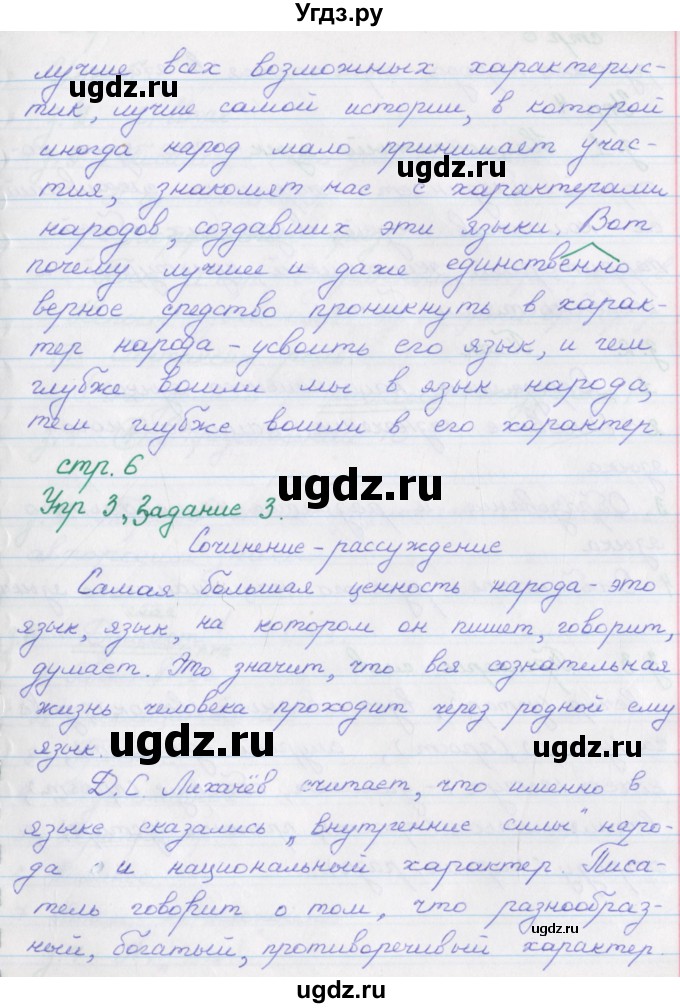 Угдз.ру
лучше всех возможных характерис-
тик, лучше самой истории, в которой
иногда народ мало принимает учас-
тия, знакомят нас с характерами
народов, создавших эти языки. Вот
почему лучшее и даже единственно
верное средство проникнуть в харак-
тер народа - усвоить его язык, и чем
глубже вошли мы в язык народа,
тем глубже вошли в его характер.
стр. 6
Упр 3, Задание 3.
Сочинение - рассуждение
Самая большая ценность народа - это
язык, язык, на котором он пишет, говорит,
думает. Это значит, что вся сознательная
жизнь человека проходит через родной ему
язык.
Д.С. Лихачёв считает, что именно в
языке сказались „внутренние силы" наро-
да и национальный характер. Писа-
тель говорит о том, что разнообраз-
ный, богатый, противоречивый характер
ugdz.ru
ugdz.ru
ugdz.ru
ugdz.ru
ugdz.ru
ugdz.ru
ugdz.ru
ugdz.ru
ugdz.ru